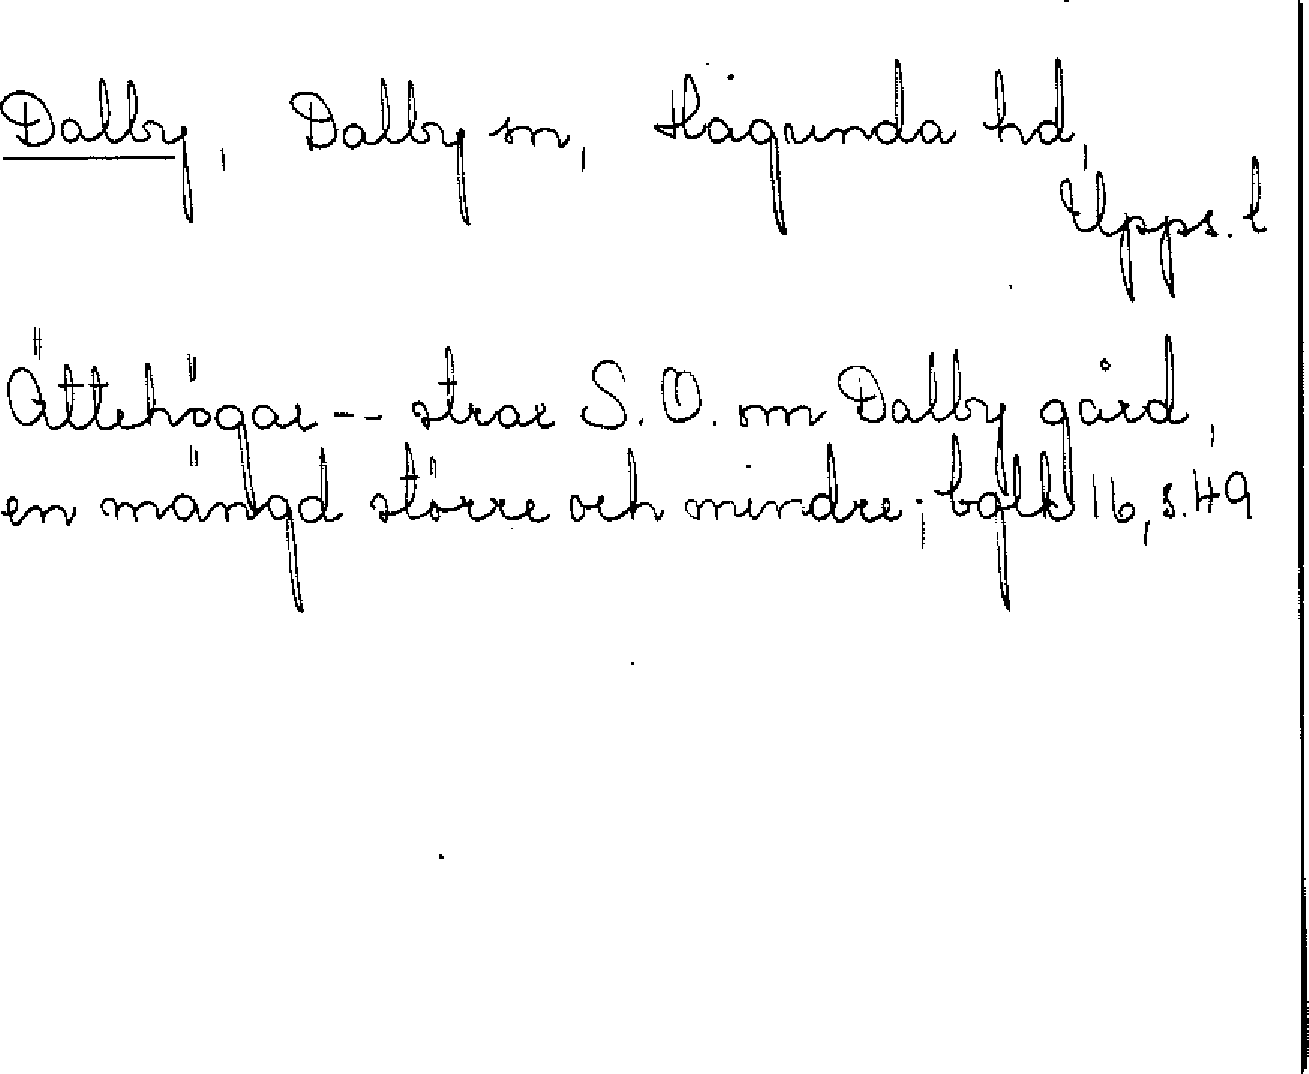 Dalby, Dalby sn, Hagunda hd,
Upps. l
Ättehögar -- strax S. O. om Dalby gård,
en mängd större och mindre;
16, s. 49